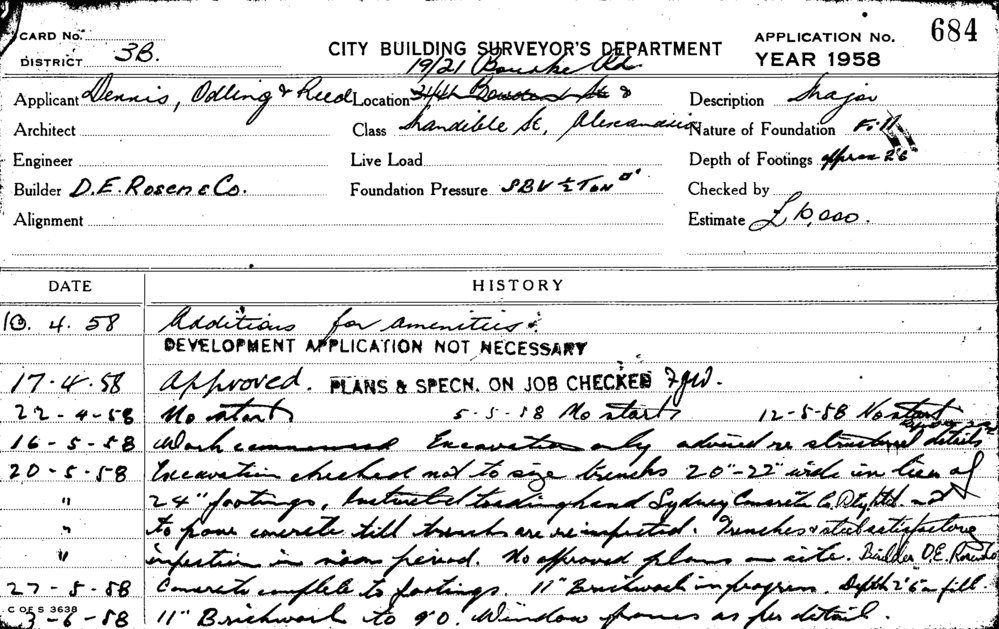 CARD No.
DISTRICT 3B.
CITY BUILDING SURVEYOR'S DEPARTMENT
APPLICATION No. 684
YEAR 1958
19/21 Bourke Rd.
Applicant Dennis, Odling & Reed
Location &
Description Major
Architect
Class Mandible St, Alexandria
Nature of Foundation Fill
Engineer
Live Load
Depth of Footings approx 2'6
Builder D.E. Rosen & Co.
Foundation Pressure SBV ½ Ton □'
Checked by
Alignment
Estimate £10,000.
DATE HISTORY
10. 4. 58 Additions for amenities.
DEVELOPMENT APPLICATION NOT NECESSARY
17-4-58 Approved. PLANS & SPECN. ON JOB CHECKED
22-4-58 No start 5-5-58 No start 12-5-58 No start
16-5-58 Work commenced Excavation only advised re structural details
20-5-58 Excavation checked not to size trenches 20"-22" wide in lieu of
" 24" footings, Instructed leading hand Sydney Concrete Co. Pty Ltd not
" to pour concrete till trench are reinspected. Trenches & steel satisfactory
" inspection in noon period. No approved plans on site. Builder D.E.
27-5-58 Concrete complete to footings. 11" Brickwork in progress. Depth 2'6" in fill.
C OF S 3638
3-6-58 11" Brickwork to 9'0. Window frames as per detail.